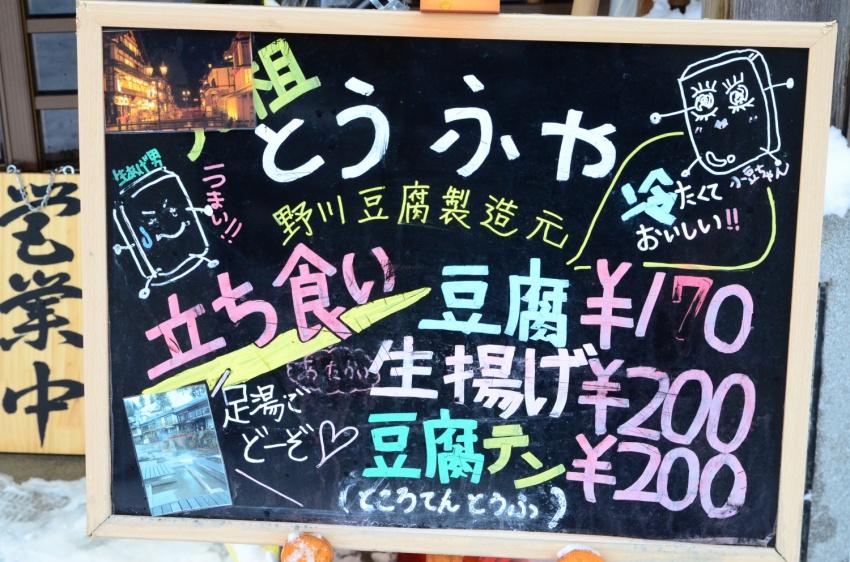 祖
とうふや
野川豆腐製造元
生あげ男
うまい!!
小豆ちゃん
冷たくて
おいしい!!
立ち食い
豆腐 ¥170
あたたかい
生揚げ ¥200
豆腐テン ¥200
(ところてんとうふ)
足湯で
どーぞ♡
営業中